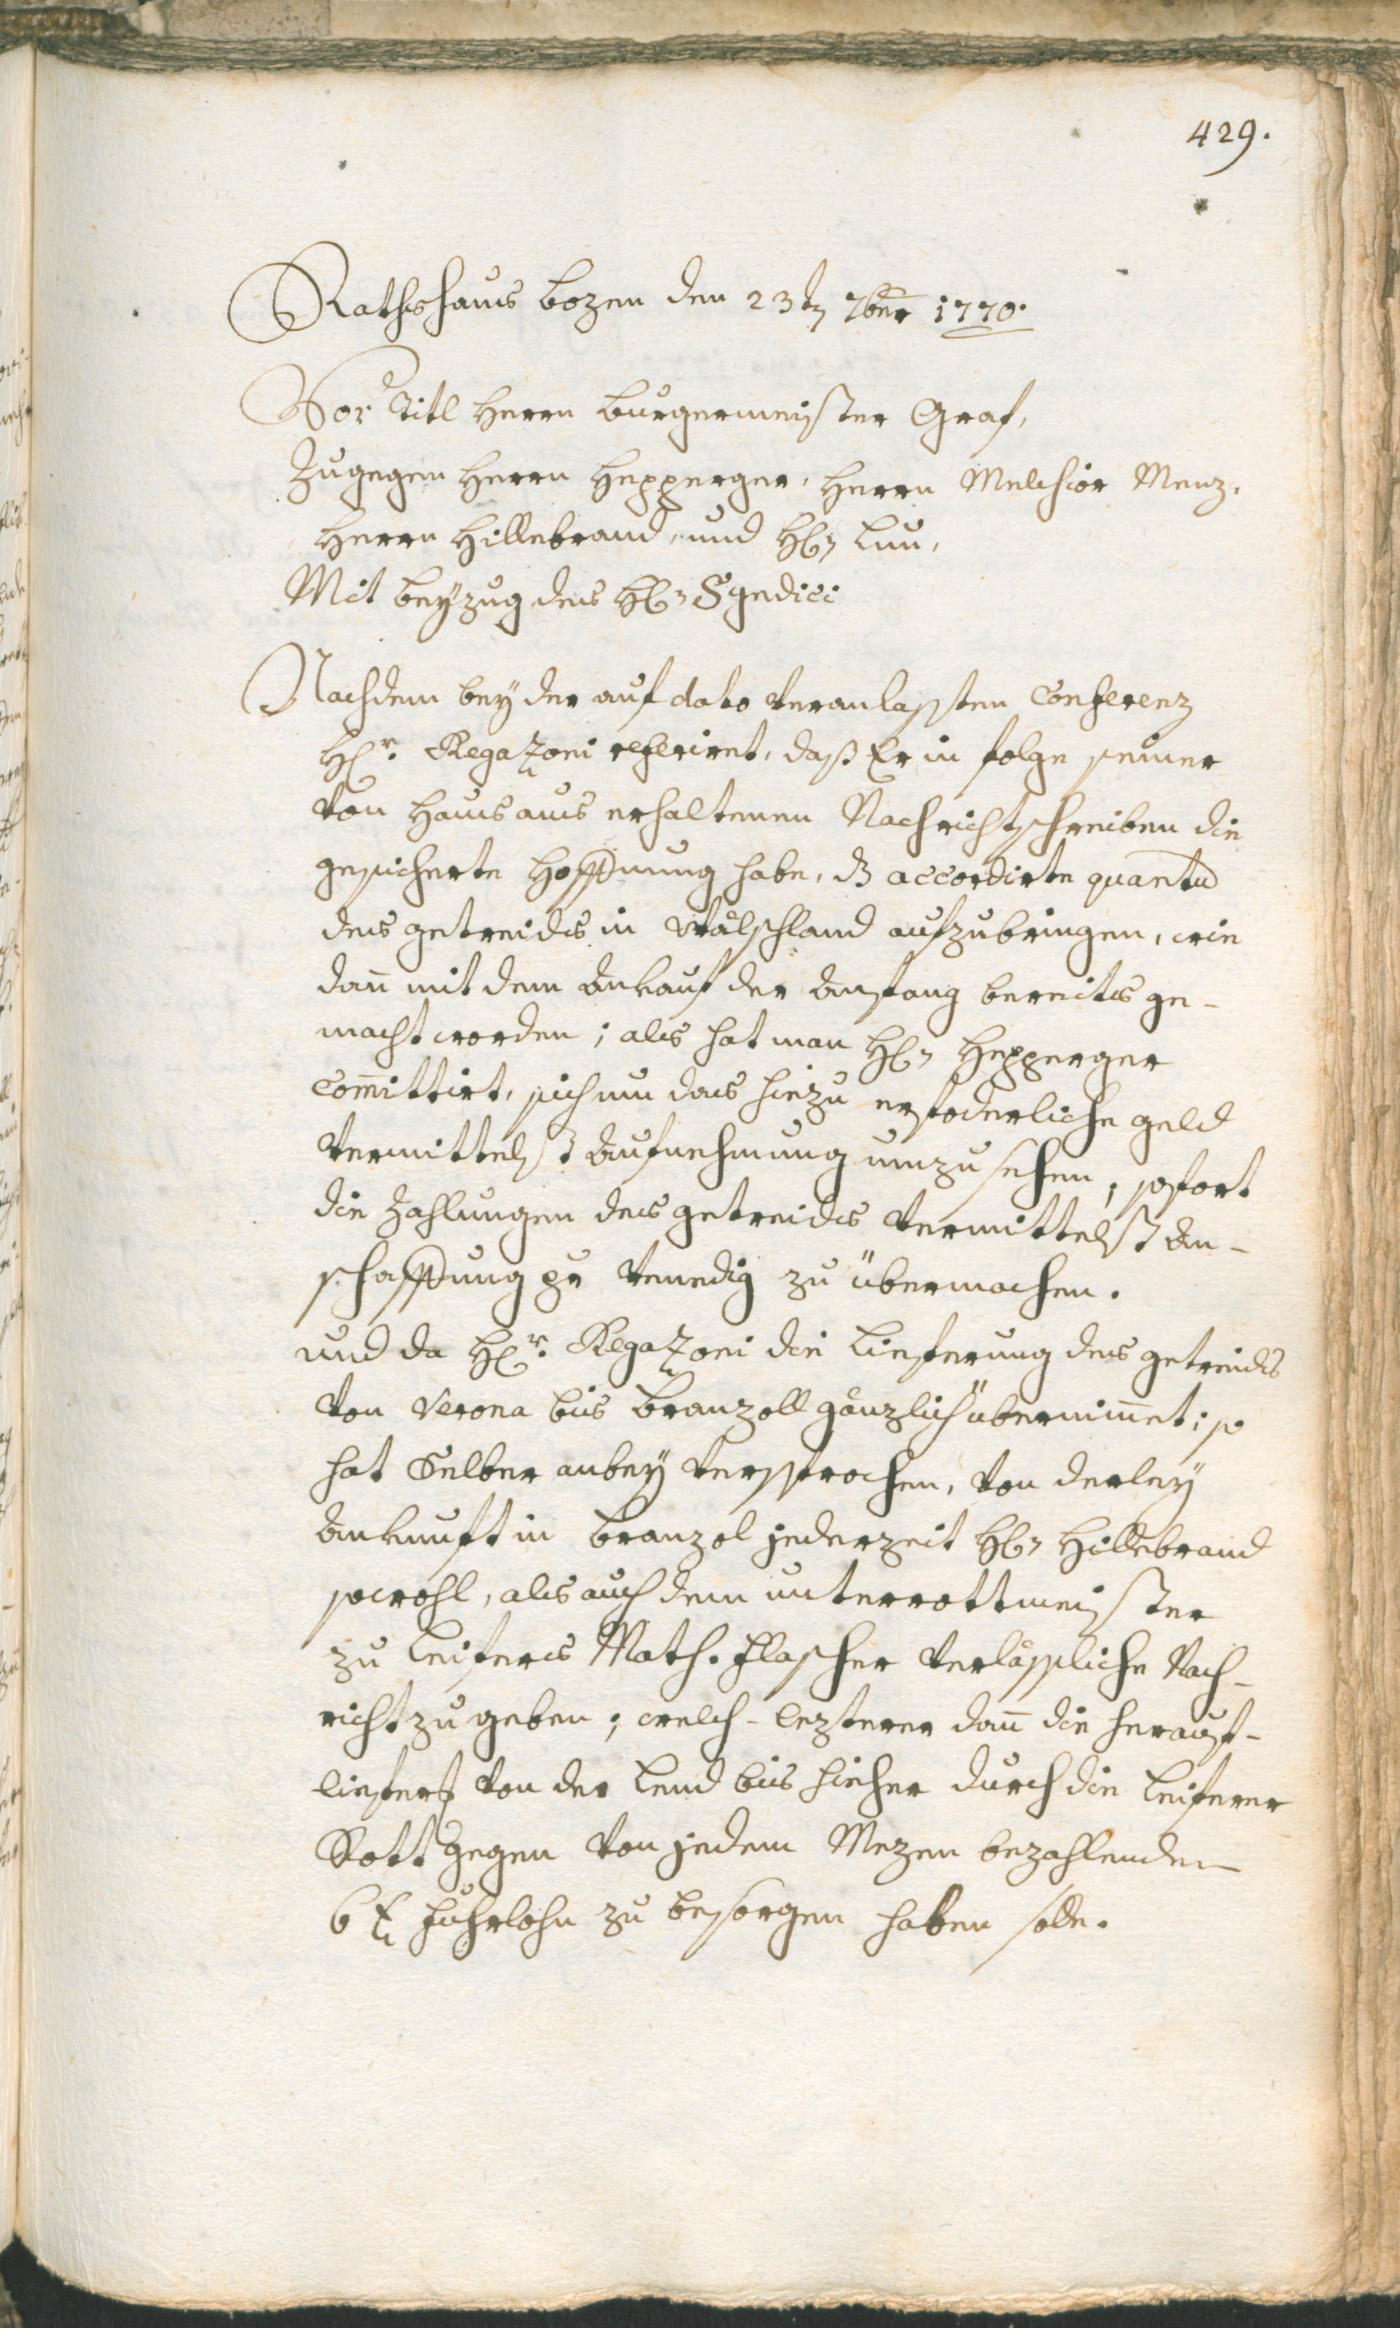 429.
Rathshaus bozen den 23t 7ber 1770.
Vor Titl Herrn burgermeister Graf,
Zugegen Herrn Hepperger, Herrn Melchior Menz,
Herrn Hillebrand, und H: Lun,
Mit beyzug des H: Syndici
Nachdem bey der auf dato veranlassten Conferenz
Hr. Regazoni referiret, daß Er in folge seiner
von Haus aus erhaltenen Nachrichtschreiben die
gesicherte Hoffnung habe, dz accordirte quantu
des getreids in wälschland aufzubringen, wie
dan̄ mit dem Ankauf der Anfang bereits ge-
macht worden; als hat man H: Hepperger
com̄ittirt, sich um das hiezu erfoderliche geld
vermittelst Aufnehmung umzusehen, sofort
die Zahlungen des getreids vermittelst An-
schaffung pr Venedig zu übermachen.
und da Hr. Regazoni die Lieferung des getreids
von Verona bis branzoll gänzlich übernim̄et; so
hat Selber anbey versprochen, von derley
Ankunft in branzol jederzeit H: Hillebrand
sowohl, als auch dem unterrottmeister
zu Leifers Math. Flascher verlässliche Nach-
richt zu geben; welch-lezterer dan̄ die herauf-
lieferg von der Lend bis hieher durch die Leiferer
Rott gegen von jedem Mezen bezahlenden
6 x fuhrlohn zu besorgen haben solle.